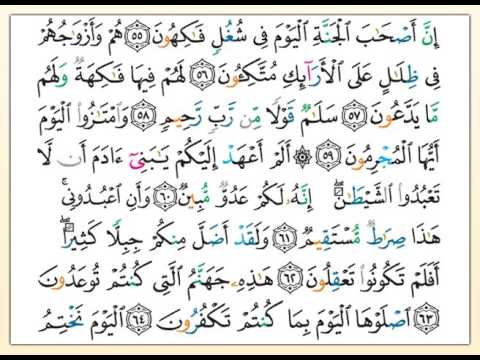 إِنَّ أَصْحَٰبَ الْجَنَّةِ الْيَوْمَ فِى شُغُلٍ فَٰكِهُونَ ٥٥ هُمْ وَأَزْوَٰجُهُمْ
فِى ظِلَٰلٍ عَلَى الْأَرَآئِكِ مُتَّكِـُٔونَ ٥٦ لَهُمْ فِيهَا فَٰكِهَةٌ وَلَهُم
مَّا يَدَّعُونَ ٥٧ سَلَٰمٌ قَوْلًا مِّن رَّبٍّ رَّحِيمٍ ٥٨ وَامْتَٰزُوا الْيَوْمَ
أَيُّهَا الْمُجْرِمُونَ ٥٩ ۞ أَلَمْ أَعْهَدْ إِلَيْكُمْ يَٰبَنِىٓ ءَادَمَ أَن لَّا
تَعْبُدُوا الشَّيْطَٰنَ ۖ إِنَّهُۥ لَكُمْ عَدُوٌّ مُّبِينٌ ٦٠ وَأَنِ اعْبُدُونِى ۚ
هَٰذَا صِرَٰطٌ مُّسْتَقِيمٌ ٦١ وَلَقَدْ أَضَلَّ مِنكُمْ جِبِلًّا كَثِيرًا ۖ
أَفَلَمْ تَكُونُوا تَعْقِلُونَ ٦٢ هَٰذِهِۦ جَهَنَّمُ الَّتِى كُنتُمْ تُوعَدُونَ
٦٣ اصْلَوْهَا الْيَوْمَ بِمَا كُنتُمْ تَكْفُرُونَ ٦٤ الْيَوْمَ نَخْتِمُ